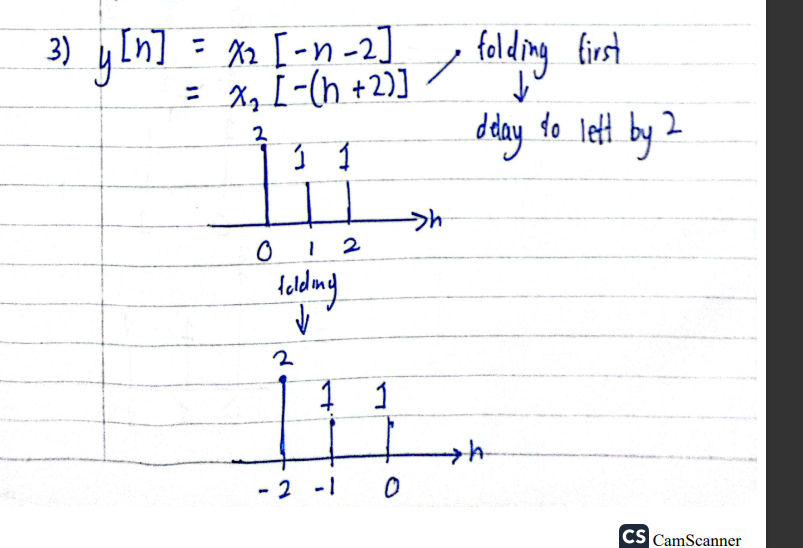 3) y[n] = x₂ [-n-2] , folding first
= x₂ [-(n+2)] ↓
delay to left by 2
2 1 1
→n
0 1 2
folding
↓
2
1 1
→n
-2 -1 0
CS CamScanner